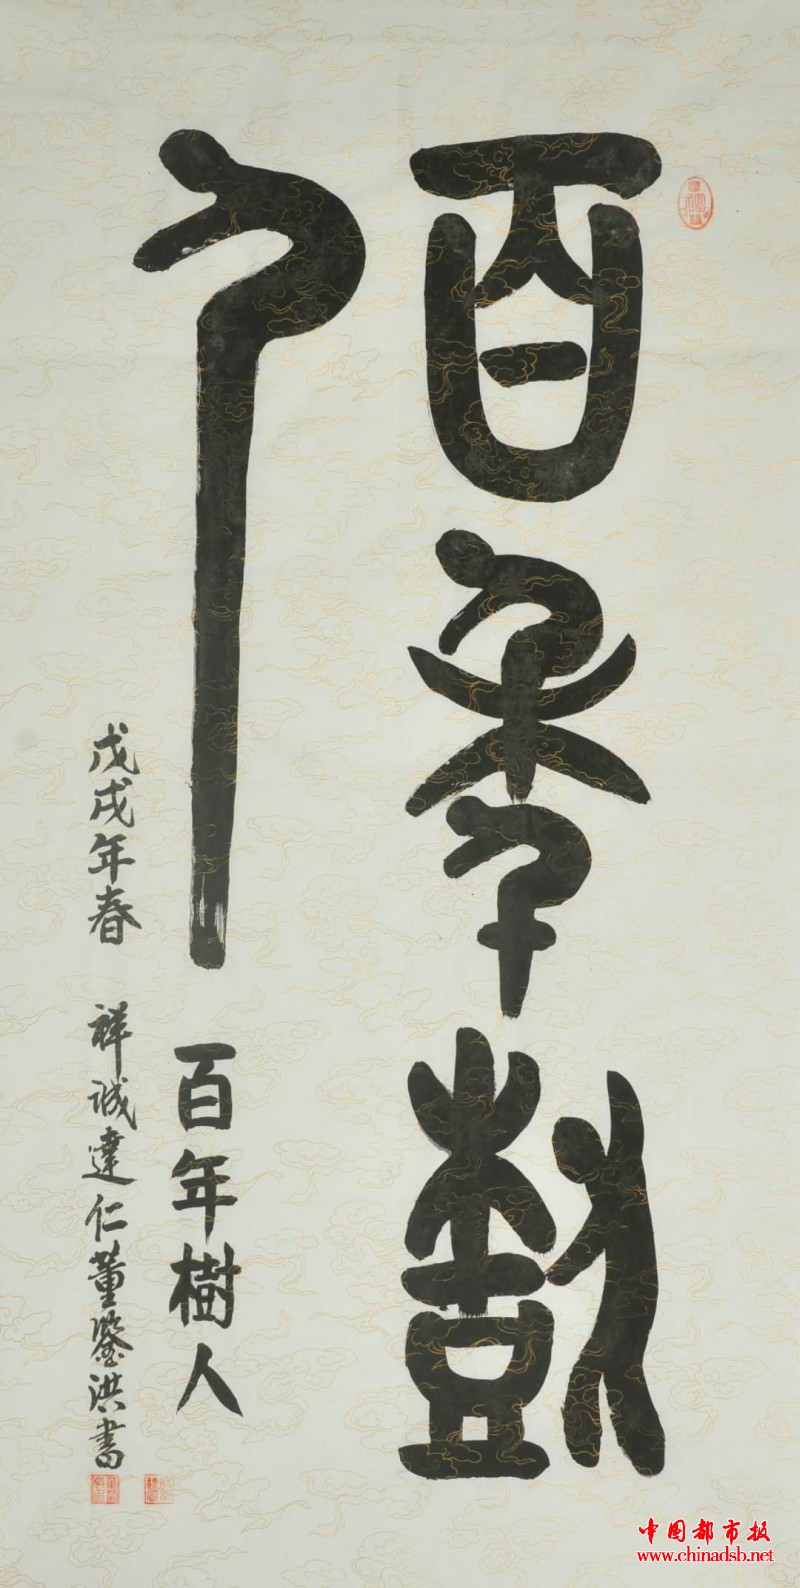 百年樹
人
百年樹人
戊戌年春 祥诚達仁董鑒洪書
中国都市报
www.chinadsb.net